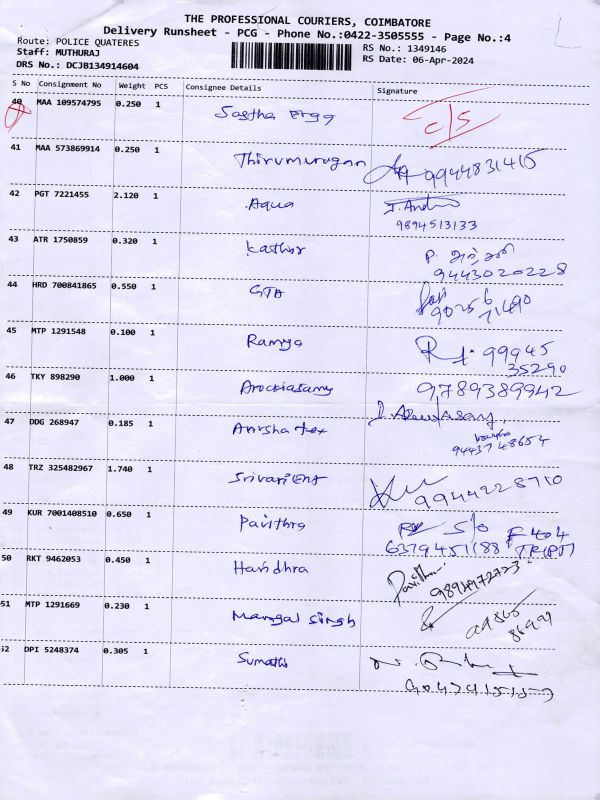 THE PROFESSIONAL COURIERS, COIMBATORE
Delivery Runsheet - PCG - Phone No.:0422-3505555 - Page No.:4
Route: POLICE QUATERES
RS No.: 1349146
Staff: MUTHURAJ
RS Date: 06-Apr-2024
DRS No.: DCJB134914604
S No Consignment No Weight PCS Consignee Details Signature
40 MAA 109574795 0.250 1 Sastha Engg C/S
41 MAA 573869914 0.250 1 Thirumurugan 9944831415
42 PGT 7221455 2.120 1 Aqua
9894513133
43 ATR 1750859 0.320 1 Kasthuri P.
9443020228
44 HRD 700841865 0.550 1 GTA
90256
71490
45 MTP 1291548 0.100 1 Ramya 99945
35290
46 TKY 898290 1.000 1 Arockiasamy 9789389942
47 DDG 268947 0.185 1 Anusha tex
9443748654
48 TRZ 325482967 1.740 1 Srivari Ent 9944228710
49 KUR 7001408510 0.650 1 Pavithra S/o F 404
6379451188
50 RKT 9462053 0.450 1 Haridhra
51 MTP 1291669 0.230 1 Mangal Singh
52 DPI 5248374 0.305 1 Sumathi